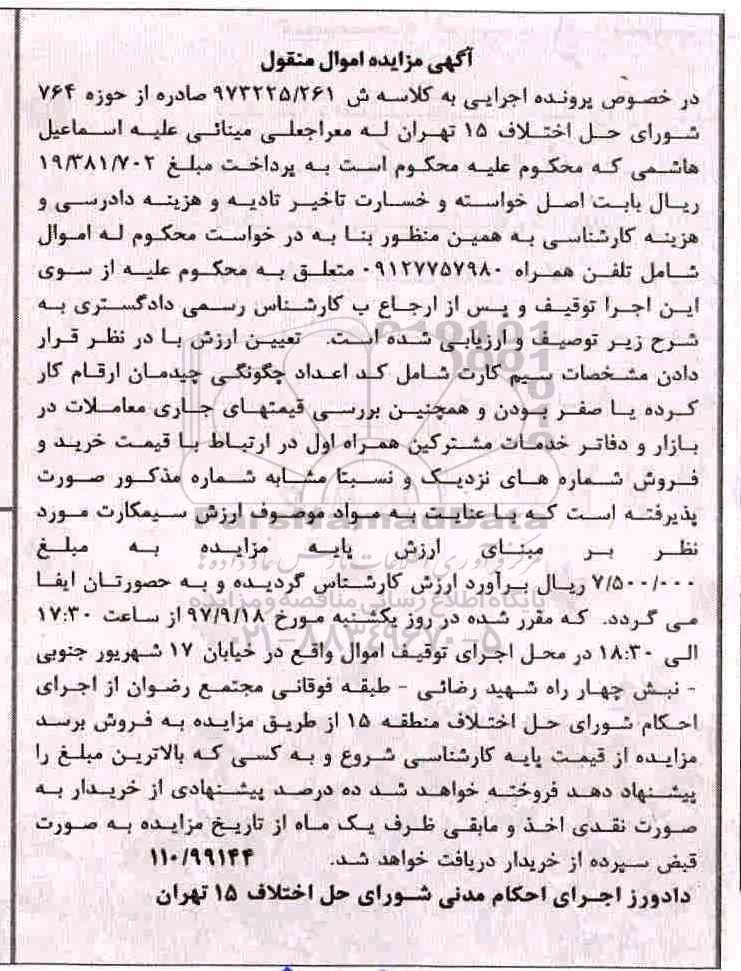 آگهی مزایده اموال منقول
در خصوص پرونده اجرایی به کلاسه ش ۹۷۳۲۲۵/۲۶۱ صادره از حوزه ۷۶۴
شورای حل اختلاف ۱۵ تهران له معراجعلی مینائی علیه اسماعیل
هاشمی که محکوم علیه محکوم است به پرداخت مبلغ ۱۹/۳۸۱/۷۰۲
ریال بابت اصل خواسته و خسارت تاخیر تادیه و هزینه دادرسی و
هزینه کارشناسی به همین منظور بنا به در خواست محکوم له اموال
شامل تلفن همراه ۰۹۱۲۷۷۵۷۹۸۰ متعلق به محکوم علیه از سوی
این اجرا توقیف و پس از ارجاع ب کارشناس رسمی دادگستری به
شرح زیر توصیف و ارزیابی شده است. تعیین ارزش با در نظر قرار
دادن مشخصات سیم کارت شامل کد اعداد چگونگی چیدمان ارقام کار
کرده یا صفر بودن و همچنین بررسی قیمتهای جاری معاملات در
بازار و دفاتر خدمات مشترکین همراه اول در ارتباط با قیمت خرید و
فروش شماره های نزدیک و نسبتا مشابه شماره مذکور صورت
پذیرفته است که با عنایت به مواد موصوف ارزش سیمکارت مورد
نظر بر مبنای ارزش پایه مزایده به مبلغ
۷/۵۰۰/۰۰۰ ریال برآورد ارزش کارشناس گردیده و به حصورتان ایفا
می گردد. که مقرر شده در روز یکشنبه مورخ ۹۷/۹/۱۸ از ساعت ۱۷:۳۰
الی ۱۸:۳۰ در محل اجرای توقیف اموال واقع در خیابان ۱۷ شهریور جنوبی
- نبش چهار راه شهید رضائی - طبقه فوقانی مجتمع رضوان از اجرای
احکام شورای حل اختلاف منطقه ۱۵ از طریق مزایده به فروش برسد
مزایده از قیمت پایه کارشناسی شروع و به کسی که بالاترین مبلغ را
پیشنهاد دهد فروخته خواهد شد ده درصد پیشنهادی از خریدار به
صورت نقدی اخذ و مابقی ظرف یک ماه از تاریخ مزایده به صورت
قبض سپرده از خریدار دریافت خواهد شد. ۱۱۰/۹۹۱۴۴
دادورز اجرای احکام مدنی شورای حل اختلاف ۱۵ تهران
ParsNamadData
پایگاه اطلاع رسانی مناقصه و مزایده
۰۲۱-۸۸۳۴۹۶۷۰-۵